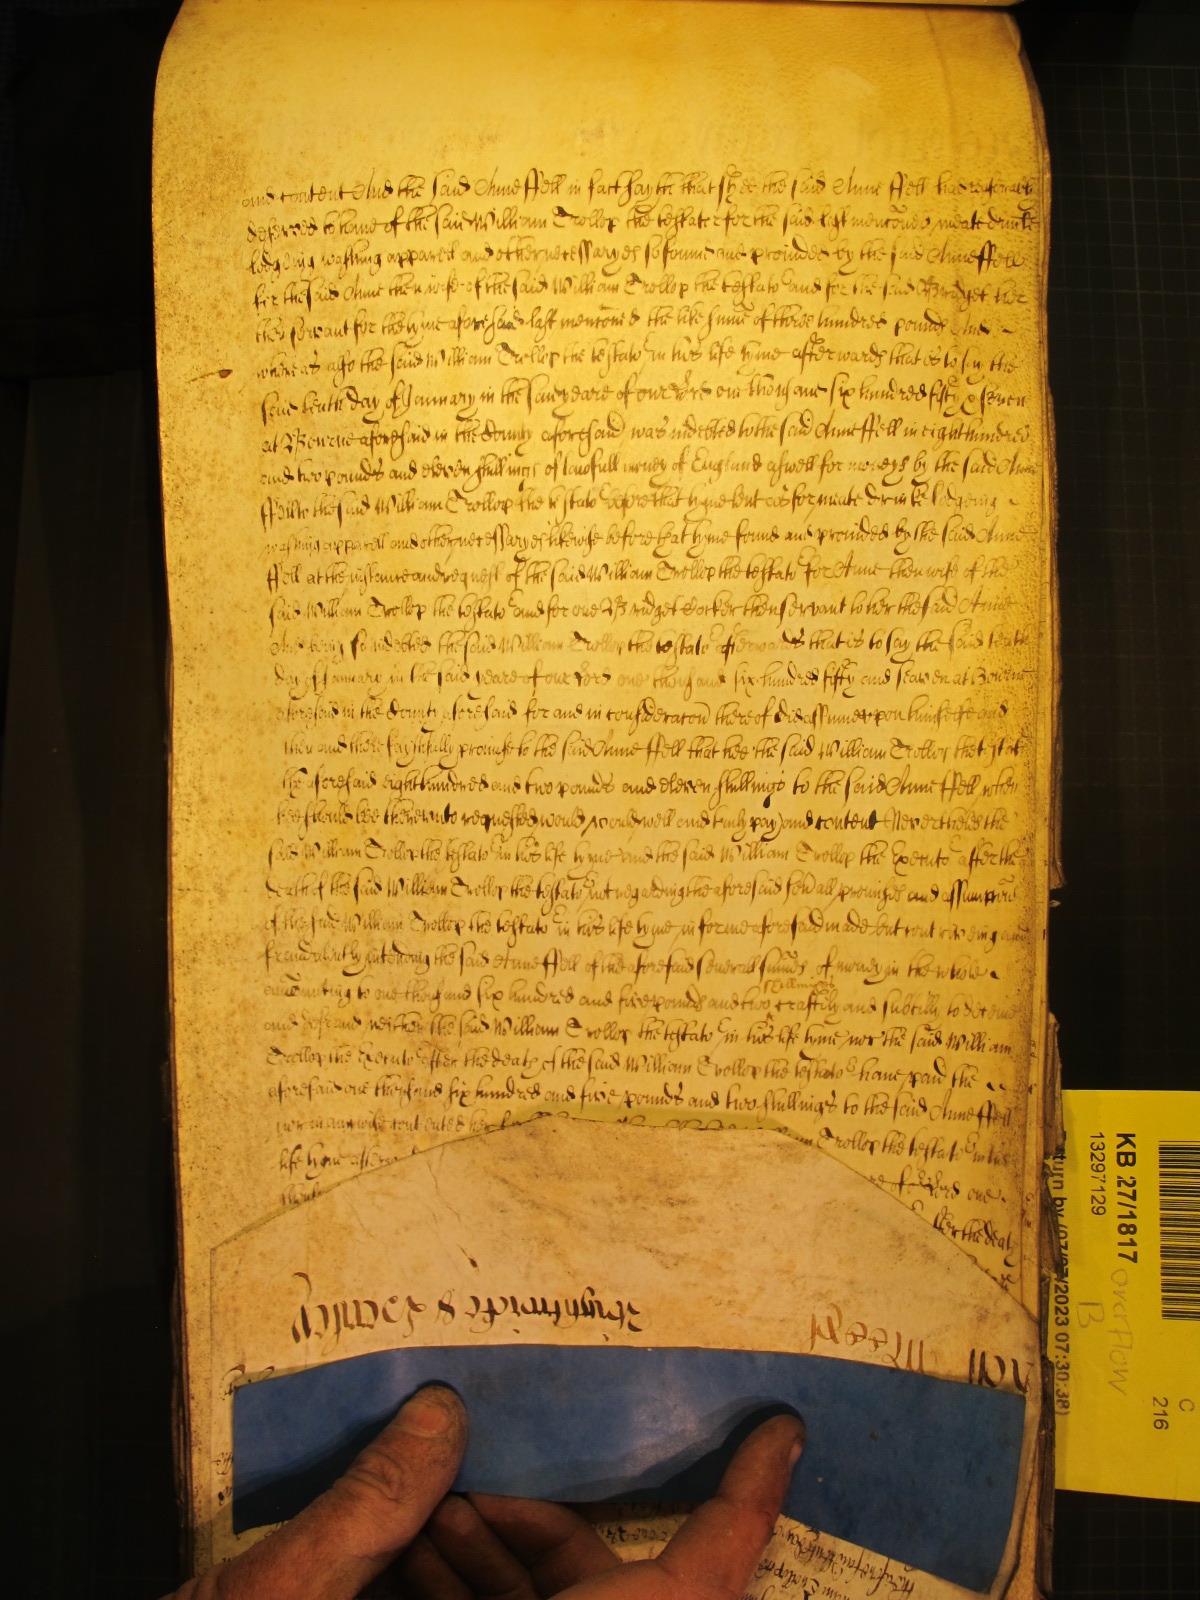 and content And the said Anne Ffell in fact sayth that shee the said Anne Ffell hath reasonably
deserved to have of the said William Trollop the testator for the said last mentioned meate drinke
lodgeing washing apparell and other necessaryes so found and provided by the said Anne Ffell
for the said Anne then wife of the said William Trollop the testator and for the said Bridget her
then servant for the tyme aforesaid last mentoned the like sume of three hundred pounds And
whereas also the said William Trollop the testator in his life tyme afterwards that is to say the
said tenth day of January in the said yeare of our Lord one thousand six hundred fifty & seven
at Bourne aforesaid in the County aforesaid was indebted to the said Anne Ffell in eight hundred
and two pounds and eleven shillings of lawfull money of England aswell for moneys by the said Anne
Ffell to the said William Trollop the testator before that tyme lent as for meate drinke lodgeing
washing apparell and other necessaryes likewise before that tyme found and provided by the said Anne
Ffell at the instance and request of the said William Trollop the testator for Anne then wife of the
said William Trollop the testator and for one Bridget Cocker then servant to her the said Anne
And being so indebted the said William Trollop the testator afterwards that is to say the said tenth
day of January in the said yeare of our Lord one thousand six hundred fifty and seaven at Bourne
aforesaid in the County aforesaid for and in consideracon thereof did assume upon himselfe and
then and there faythfully promise to the said Anne Ffell that hee the said William Trollop the testator
the aforesaid eight hundred and two pounds and eleven shillings to the said Anne Ffell when
hee should bee thereunto requested would well and truly pay and content Neverthelesse the
said William Trollop the testator in his life tyme and the said William Trollop the Executor after the
death of the said William Trollop the testator not regarding the aforesaid severall promises and assumpcons
of the said William Trollop the testator in his life tyme in forme aforesaid made but contriveing and
fraudulently intending the said Anne Ffell of the aforesaid severall sumes of money in the whole
amounting to one thousand six hundred and five pounds and two shillings craftily and subtilly to deceive
and defraud neither the said William Trollop the testator in his life tyme nor the said William
Trollop the Executor after the death of the said William Trollop the testator have paid the
aforesaid one thousand six hundred and five pounds and two shillings to the said Anne Ffell
nor in any wise contented her
Trollop the testator in his
life tyme
of our Lord one
after the death
Wightwicke & Henley
KB 27/1817
13297129
overflow
B
Return by (07/07/2023 07:30:38)
C
216